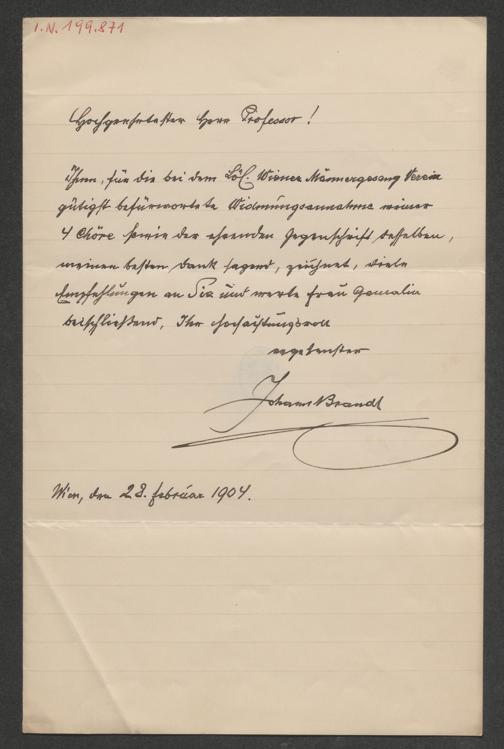 I.N. 199.871
Hochgeehrtester Herr Professor!
Ihnen, für die bei dem Löbl. Wiener Männergesang Verein
gütigst befürwortete Widmungsannahme meiner
4 Chöre sowie der ehrenden Gegenschrift desselben,
meinen besten Dank sagend, zeichnet, viele
Empfehlungen an Sie und werte Frau Gemalin
beischließend, Ihr hochachtungsvoll
ergebenster
Johann Brandl
Wien, den 28. Februar 1904.